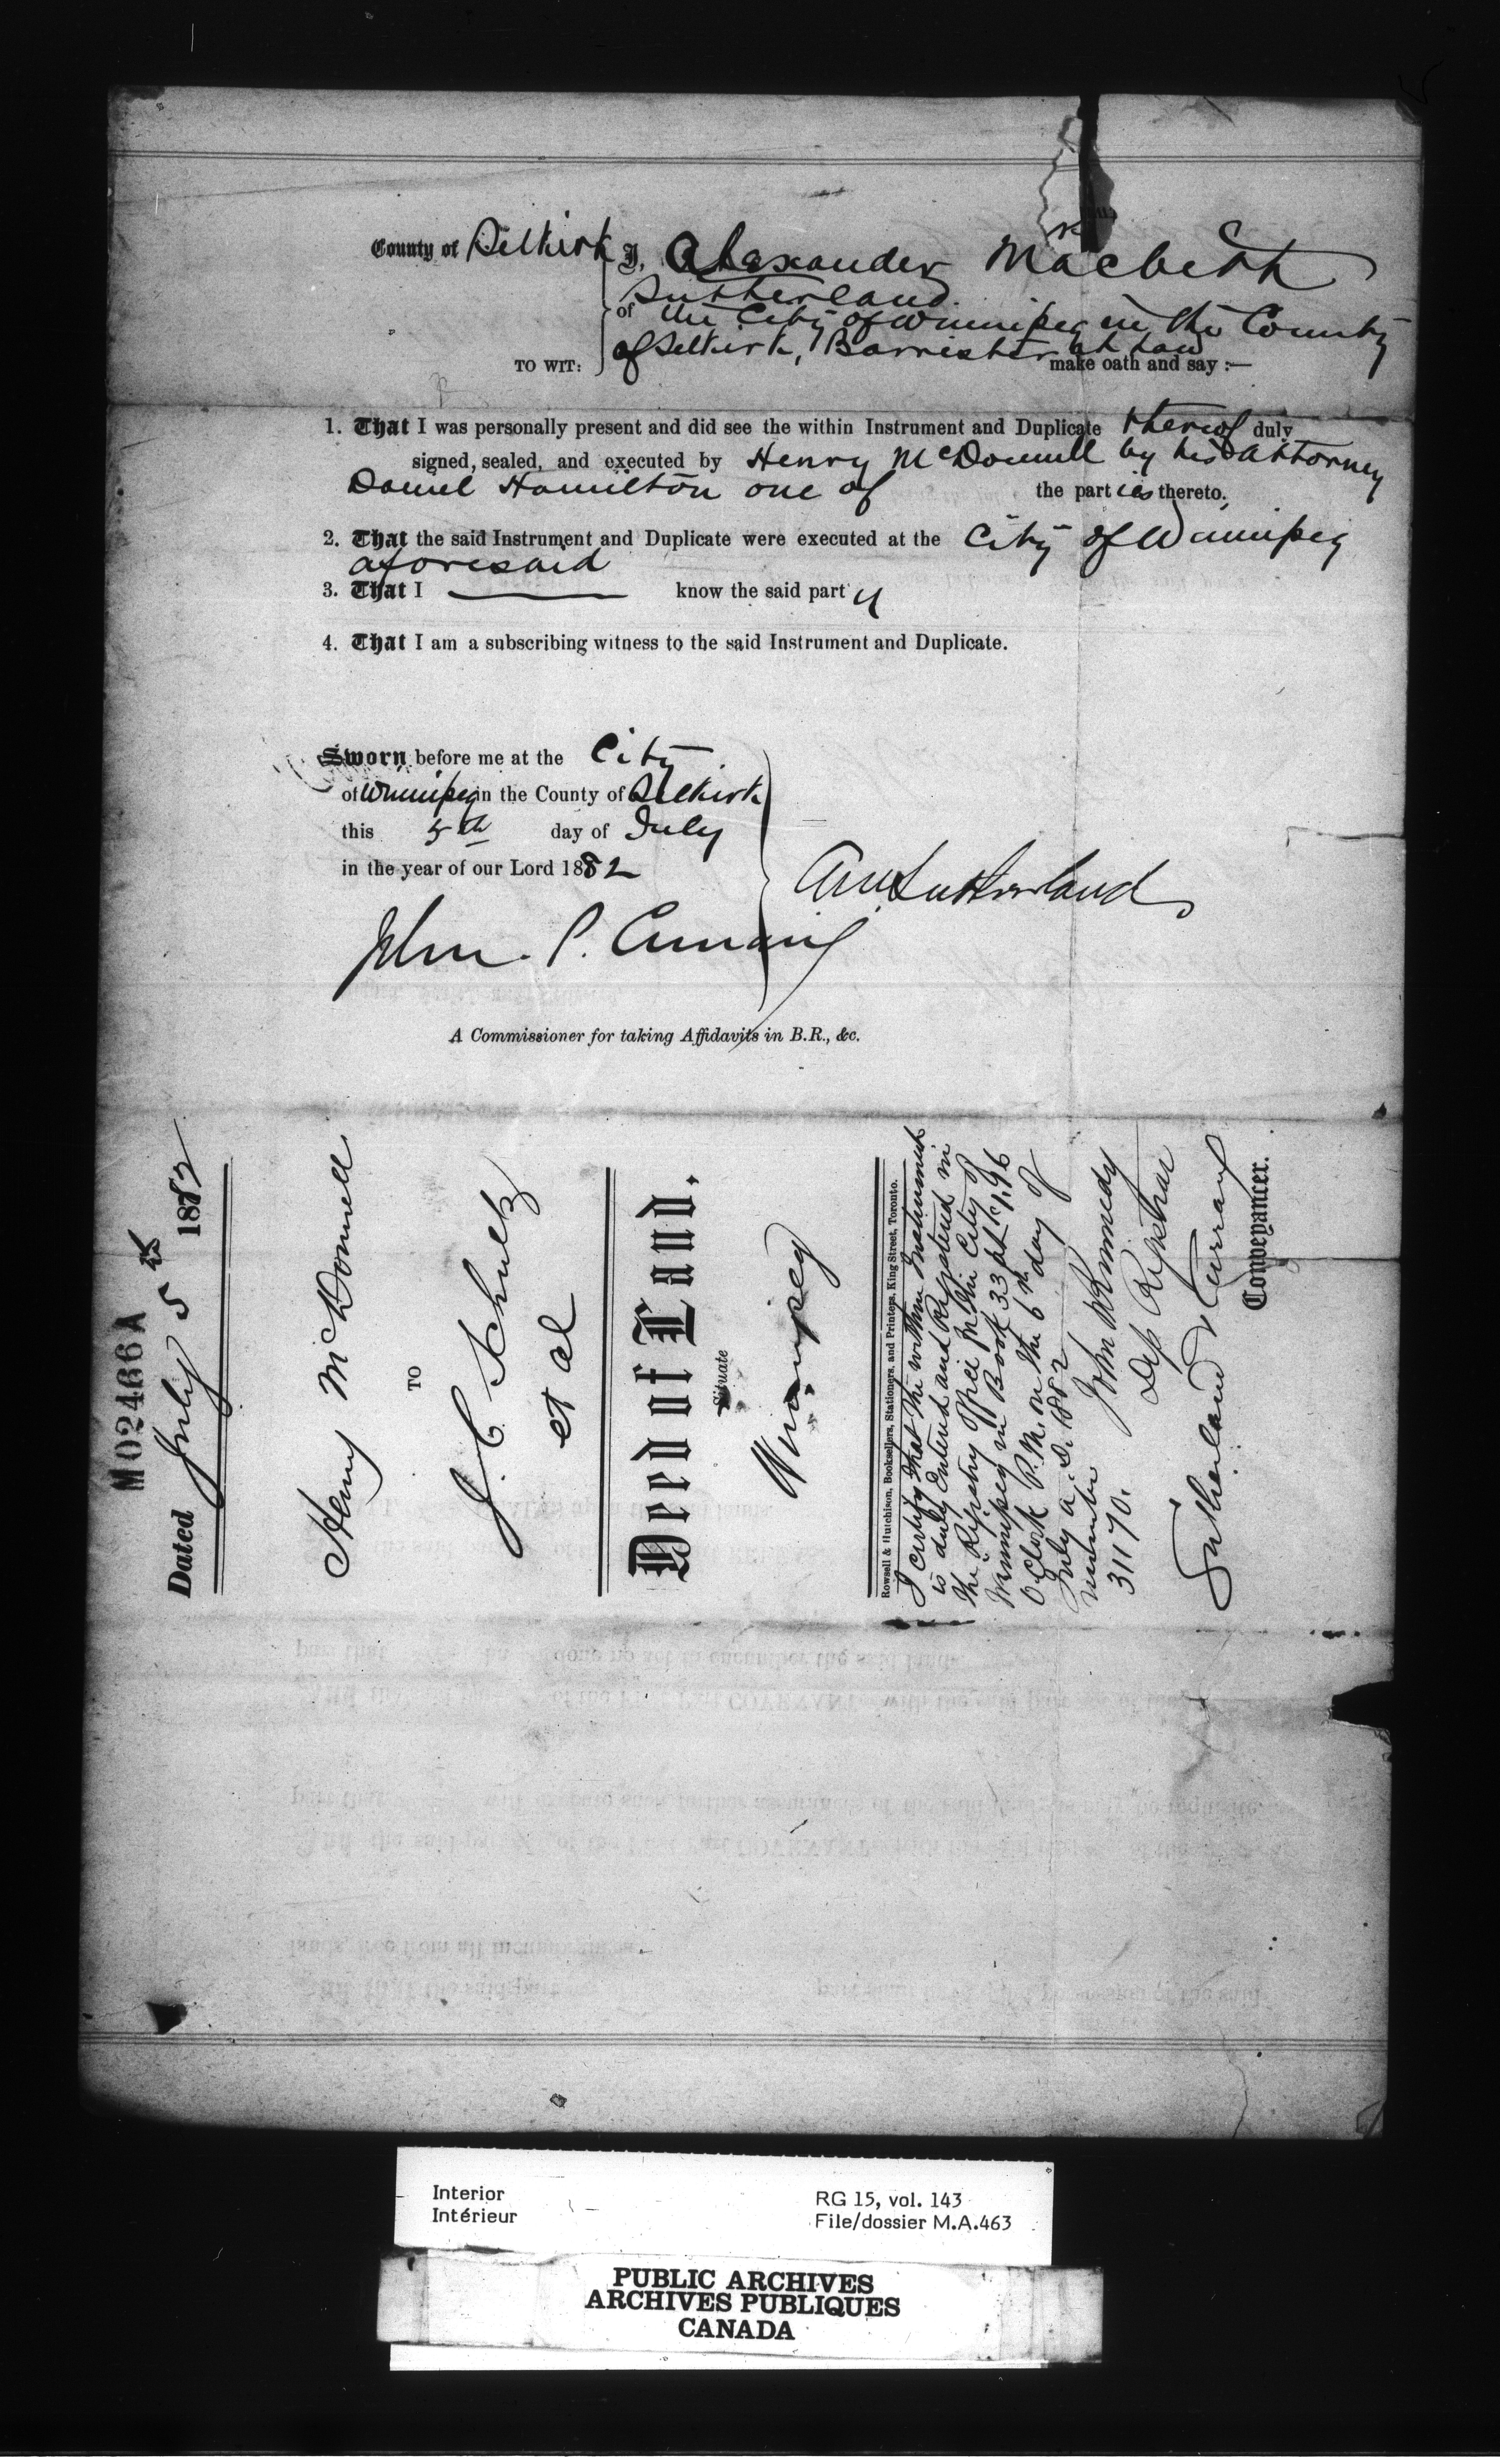 County of Selkirk I, Alexander Macbeth
Sutherland
of the City of Winnipeg in the County
TO WIT: of Selkirk, Barrister at Law make oath and say :—
1. That I was personally present and did see the within Instrument and Duplicate thereof duly
signed, sealed, and executed by Henry McDonnell by his Attorney
Daniel Hamilton one of the parties thereto.
2. That the said Instrument and Duplicate were executed at the City of Winnipeg
aforesaid
3. That I —— know the said party
4. That I am a subscribing witness to the said Instrument and Duplicate.
Sworn before me at the City
of Winnipeg in the County of Selkirk
this 5th day of July
in the year of our Lord 1882
A.M. Sutherland
John P.
A Commissioner for taking Affidavits in B.R., &c.
M02466A
Dated July 5th 1882
Henry McDonnell
TO
J. C. Schultz
et al
Deed of Land.
Situate
Winnipeg
Rowsell & Hutchison, Booksellers, Stationers, and Printers, King Street, Toronto.
I certify that the within Instrument
is duly Entered and Registered in
the Registry Office in the City of
Winnipeg in Book 33 at 1.46
O'Clock P.M. on the 6th day of
July A.D. 1882
number John Kennedy
31170. Dep Registrar
Sutherland & Curran
Conveyancer.
Interior
Intérieur
RG 15, vol. 143
File/dossier M.A.463
PUBLIC ARCHIVES
ARCHIVES PUBLIQUES
CANADA